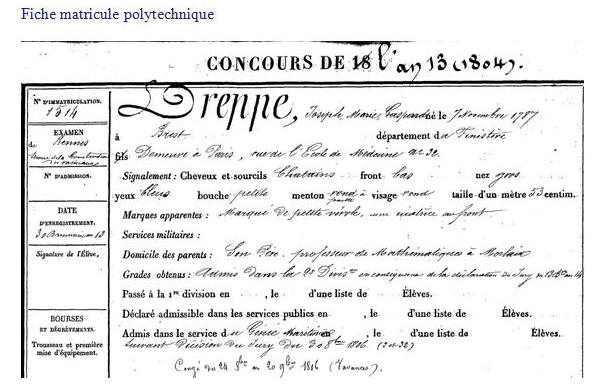 Fiche matricule polytechnique
CONCOURS DE 18 l'an 13 (1804).
N° D'IMMATRICULATION.
1514
EXAMEN
de Rennes
N° D'ADMISSION.
DATE
D'ENREGISTREMENT.
30 Brumaire 13
Signature de l'Élève,
BOURSES
ET DÉGRÈVEMENTS.
Trousseau et première
mise d'équipement.
Dreppe, Joseph Marie Gaspard né le 7 Novembre 1787
à Brest département du Finistère
fils Demeure à Paris, rue de l'Ecole de Médecine n° 32.
Signalement : Cheveux et sourcils Chatains front bas nez gros
yeux bleus bouche petite menton rond à visage rond taille d'un mètre 53 centim.
Marques apparentes : Marqué de petite vérole, une cicatrice au front
Services militaires :
Domicile des parents : Son Père, professeur de Mathématiques à Morlaix
Grades obtenus : Admis dans la 2e Divis°n en conséquence de la déclaration du Jury
Passé à la 1re division en , le d'une liste de Élèves.
Déclaré admissible dans les services publics en , le d'une liste de Élèves.
Admis dans le service du Génie Maritime en , le d'une liste de Élèves.
suivant Décision du Jury du 8bre 1806 (2 sur 32)
Congé du 24 au 20 9bre 1806 (Vacances).